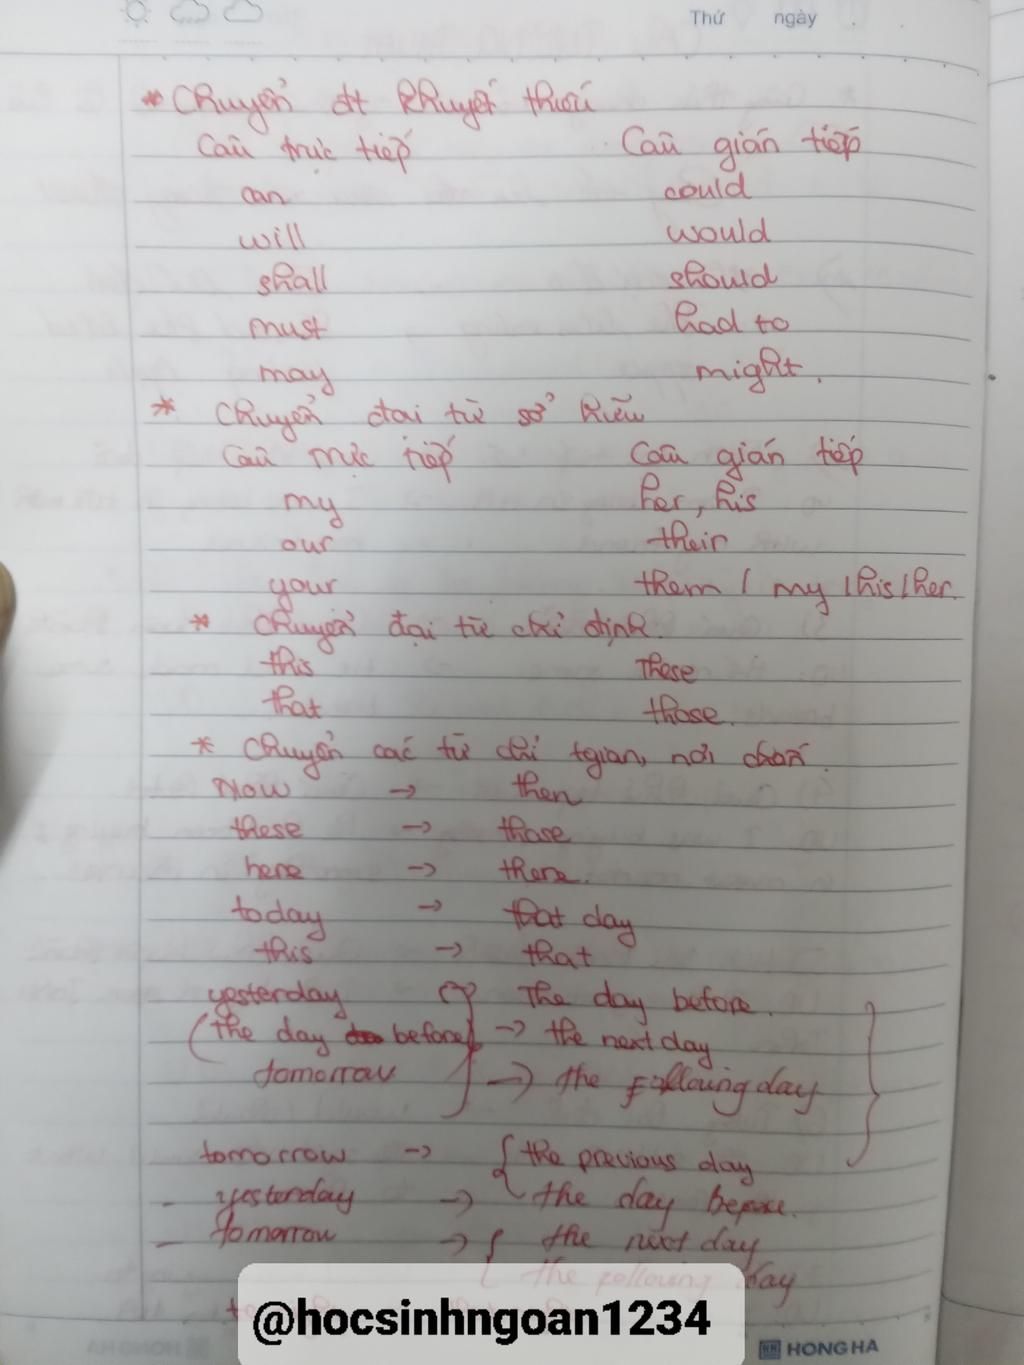 Thứ ngày
* Chuyển đt khuyết thiếu
Câu trực tiếp Câu gián tiếp
can could
will would
shall should
must had to
may might.
* Chuyển đại từ sở hữu
Câu trực tiếp Câu gián tiếp
my her, his
our their
your them / my / his / her.
* Chuyển đại từ chỉ định.
this These
that those.
* Chuyển các từ chỉ tgian, nơi chốn.
Now → then
these → those
here → there.
today → that day
this → that
yesterday The day before.
(the day before → the next day
tomorrow → the following day
tomorrow → { the previous day
- yesterday → the day before.
- tomorrow → { the next day
the following day
@hocsinhngoan1234
HONG HA